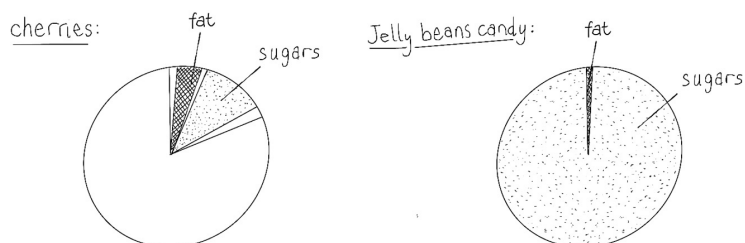 cherries:
fat
sugars
Jelly beans candy:
fat
sugars